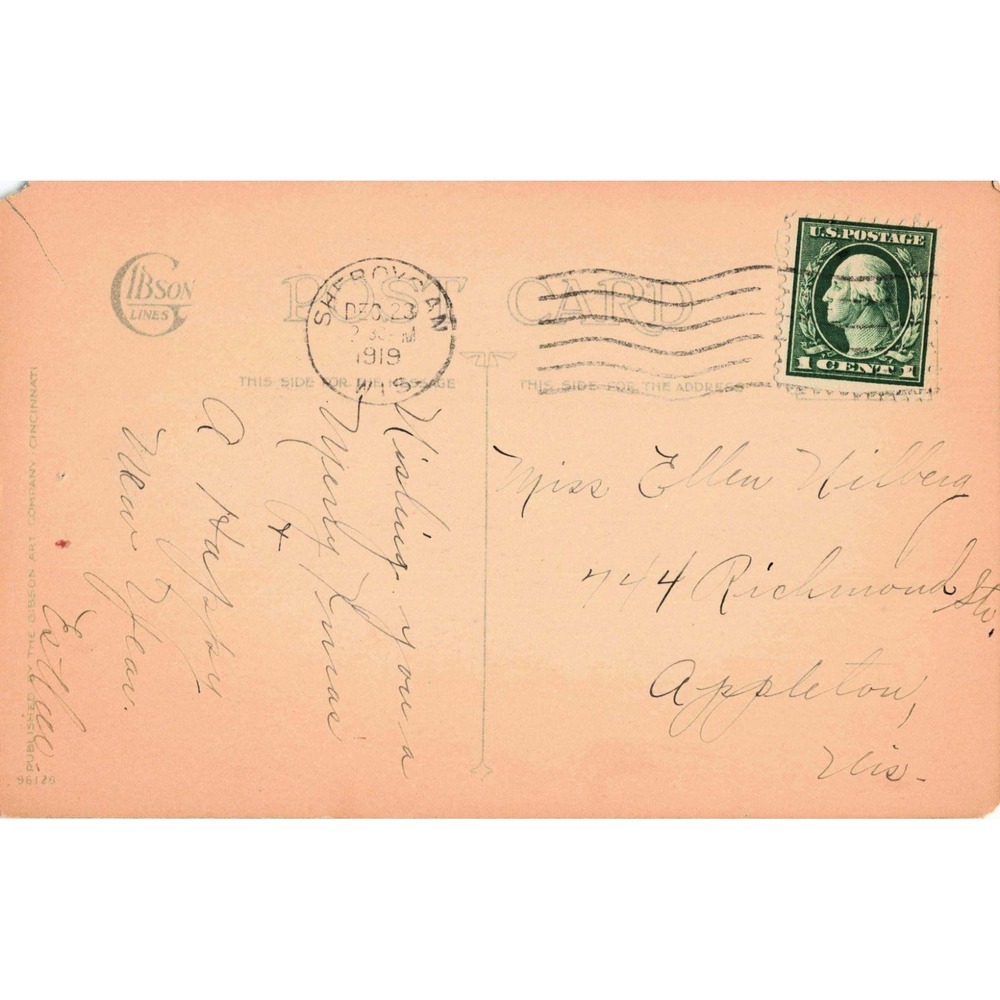 GIBSON
LINES
POST CARD
THIS SIDE FOR THE MESSAGE
THIS SIDE FOR THE ADDRESS
SHEBOYGAN
DEC 23
1919
WIS
U.S. POSTAGE
1 CENT 1
Wishing you a
Merry Xmas
+
A Happy
New Year.
Miss Ellen Hilberg
744 Richmond St.
Appleton,
Wis.
PUBLISHED BY THE GIBSON ART COMPANY, CINCINNATI
98120